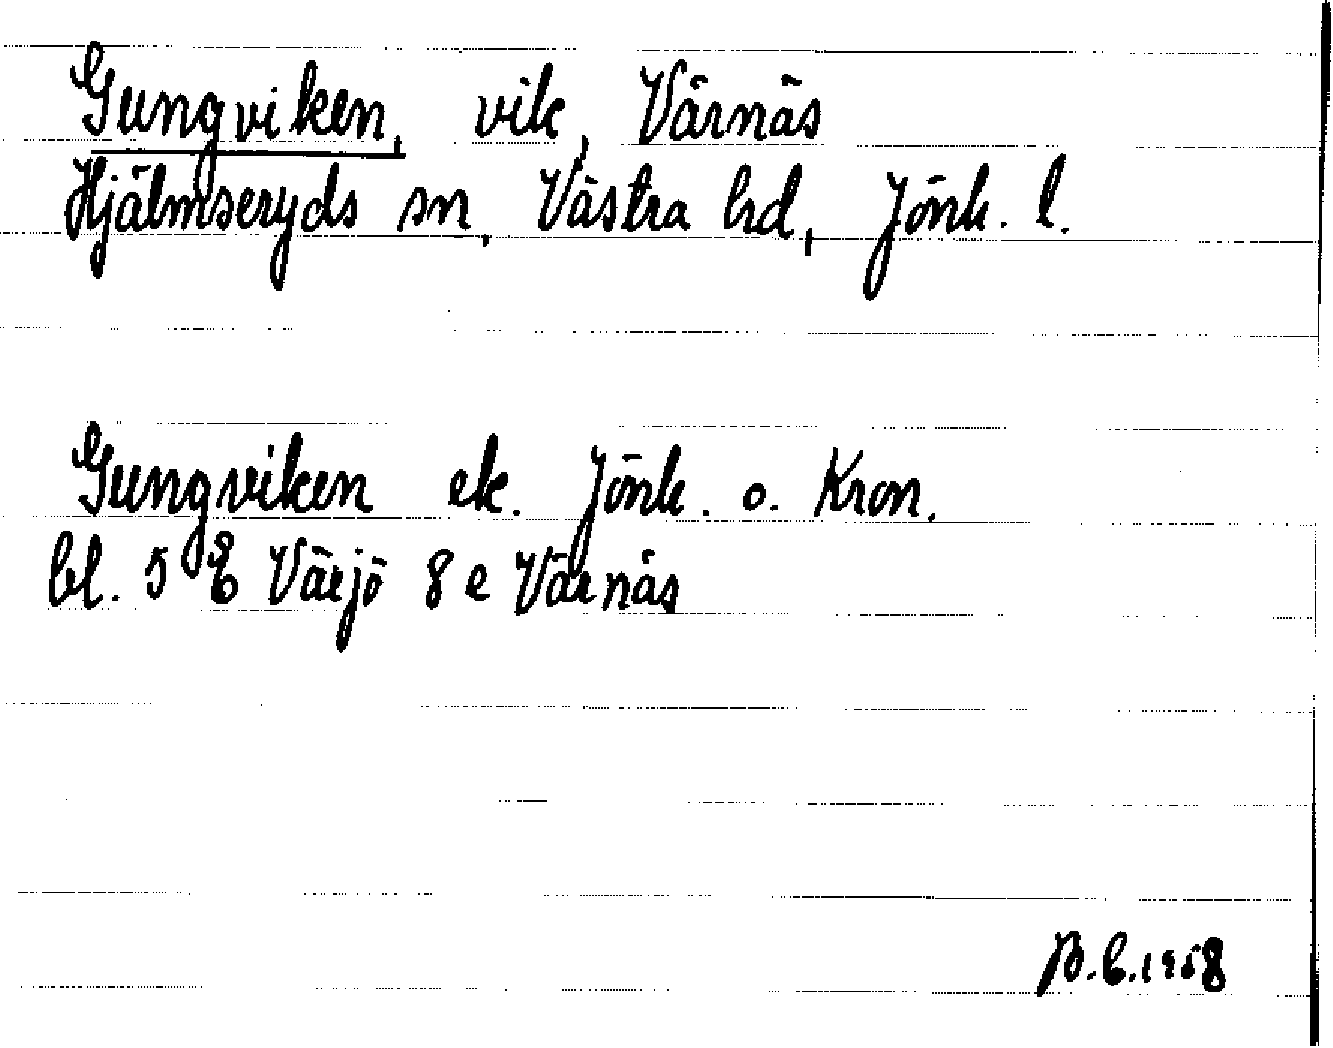 Gungviken, vik, Värnäs
Hjälmseryds sn, Västra hd, Jönk. l.
Gungviken ek. Jönk. o. Kron.
bl. 5 E Värjö 8 e Värnäs
B.C. 1958